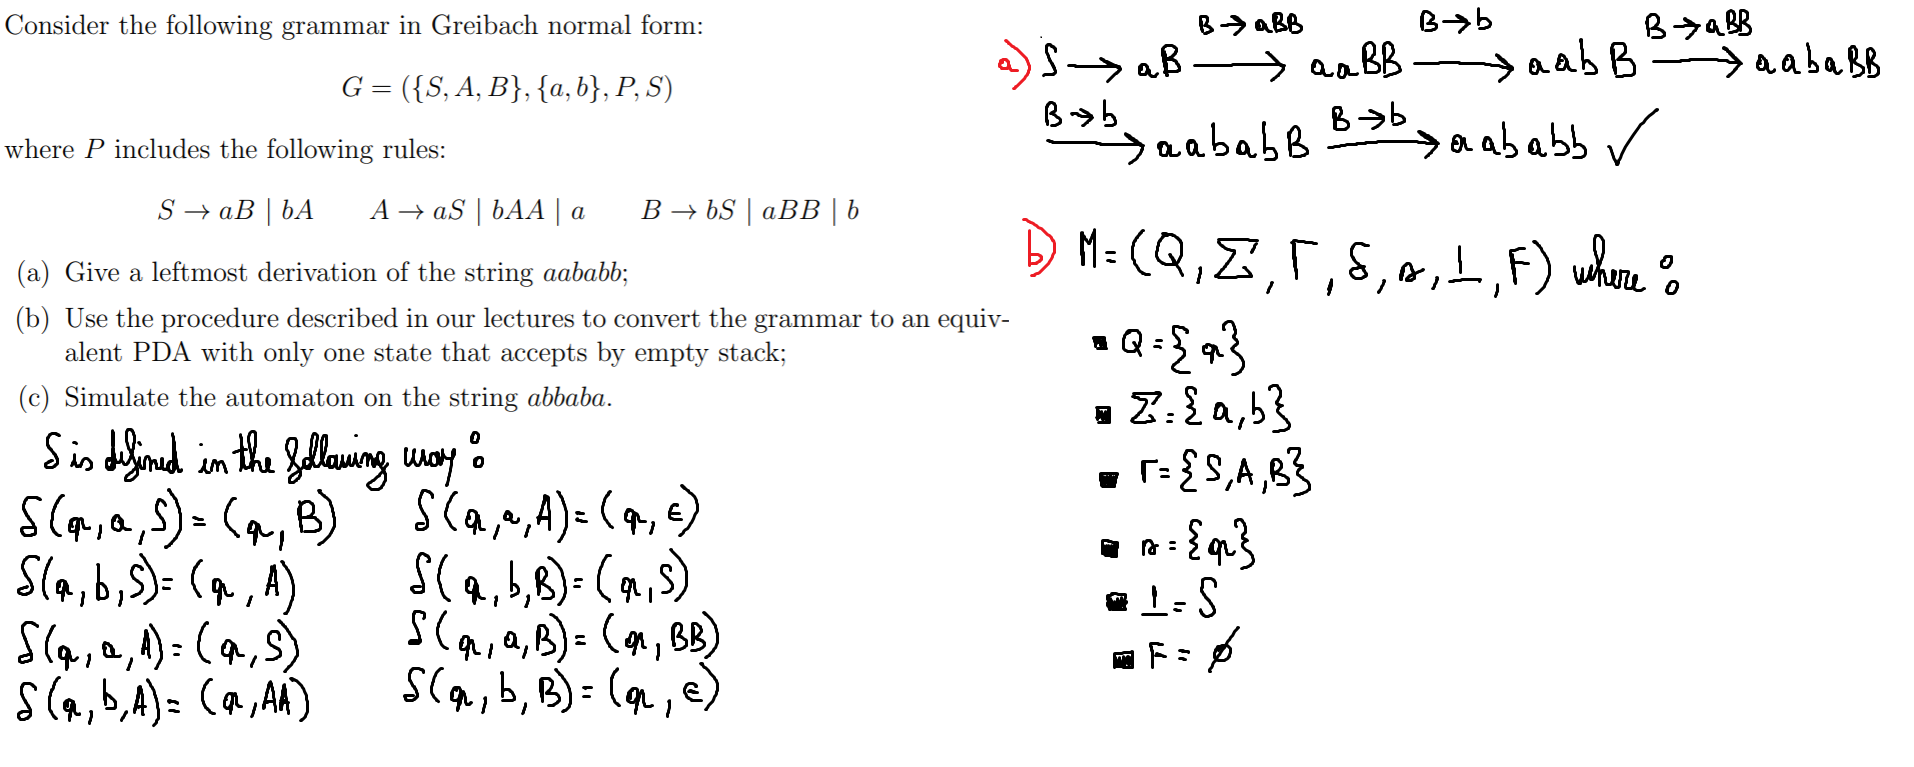 Consider the following grammar in Greibach normal form:
G = ({S, A, B}, {a, b}, P, S)
where P includes the following rules:
S → aB | bA A → aS | bAA | a B → bS | aBB | b
(a) Give a leftmost derivation of the string aababb;
(b) Use the procedure described in our lectures to convert the grammar to an equiv-
alent PDA with only one state that accepts by empty stack;
(c) Simulate the automaton on the string abbaba.
δ is defined in the following way:
δ(q, a, S) = (q, B) δ(q, a, A) = (q, ε)
δ(q, b, S) = (q, A) δ(q, b, B) = (q, S)
δ(q, a, A) = (q, S) δ(q, a, B) = (q, BB)
δ(q, b, A) = (q, AA) δ(q, b, B) = (q, ε)
B → aBB B → b B → aBB
a) S → aB → aaBB → aabB → aabaBB
B → b B → b
→ aababB → aababb ✓
b) M = (Q, Σ, Γ, δ, s, ⊥, F) where:
▪ Q = {q}
▪ Σ = {a, b}
▪ Γ = {S, A, B}
▪ s = {q}
▪ ⊥ = S
▪ F = ∅